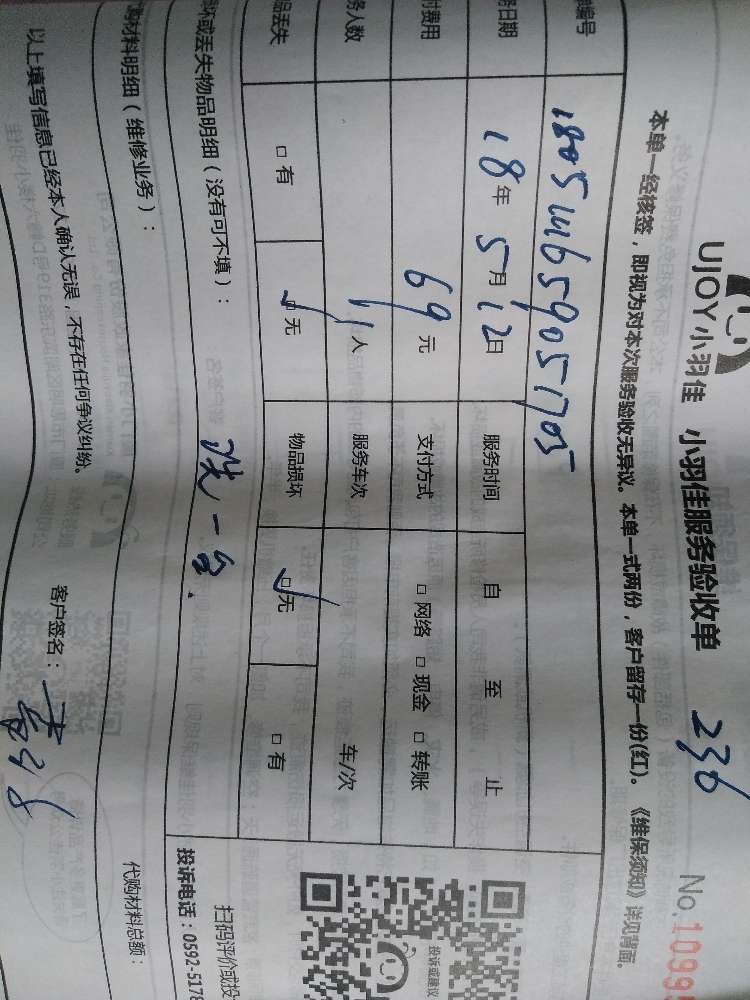 UJOY小羽佳 小羽佳服务验收单 236 No.1099
本单一经核签，即视为对本次服务验收无异议。本单一式两份，客户留存一份(红)。《维保须知》详见背面。
编号
日期 18年5月12日 服务时间 自 至 止
付费用 69元 支付方式 □网络 □现金 □转账
务人数 1人 服务车次 车/次
品丢失 □有 □无 物品损坏 □无 □有
坏或丢失物品明细（没有可不填）： 洗一台.
购材料明细（维修业务）： 代购材料总额：
以上填写信息已经本人确认无误，不存在任何争议纠纷。 客户签名：
投诉或建议
扫码评价或投
投诉电话：0592-5178